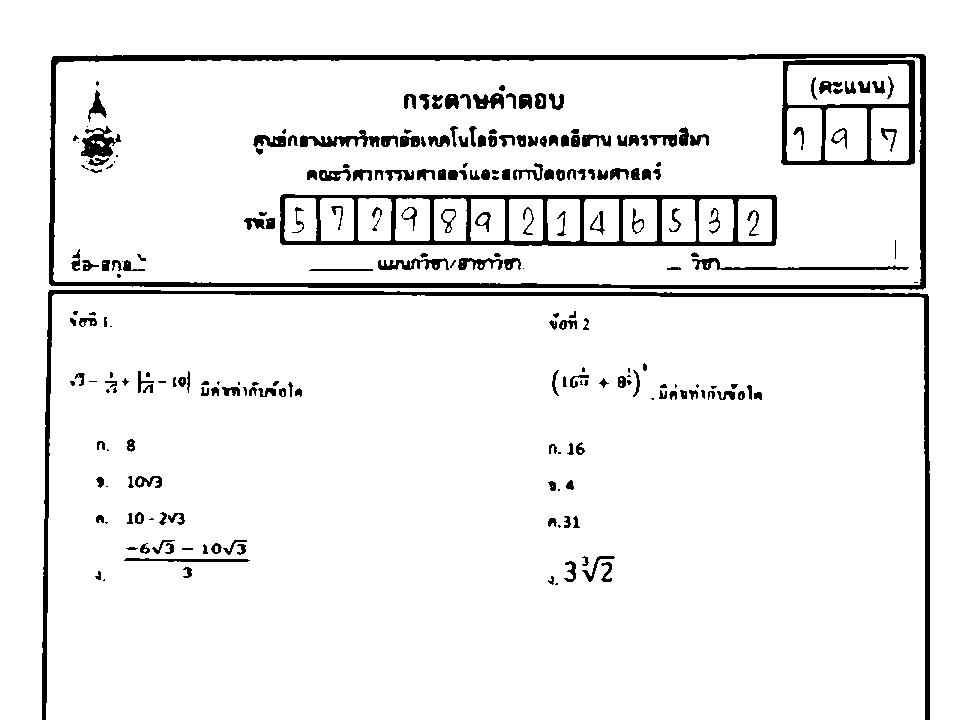 กระดาษคำตอบ
(คะแนน)
ศูนย์กลางมหาวิทยาลัยเทคโนโลยีราชมงคลอีสาน นครราชสีมา
1 9 7
คณะวิศวกรรมศาสตร์และสถาปัตยกรรมศาสตร์
รหัส 5 7 2 9 8 9 2 1 4 6 5 3 2
ชื่อ-สกุล แผนกวิชา/สาขาวิชา วิชา
ข้อที่ 1.
มีค่าเท่ากับข้อใด
ก. 8
ข. 10√3
ค. 10 - 2√3
ง. (-6√3 - 10√3)/3
ข้อที่ 2
มีค่าเท่ากับข้อใด
ก. 16
ข. 4
ค. 31
ง. 3∛2